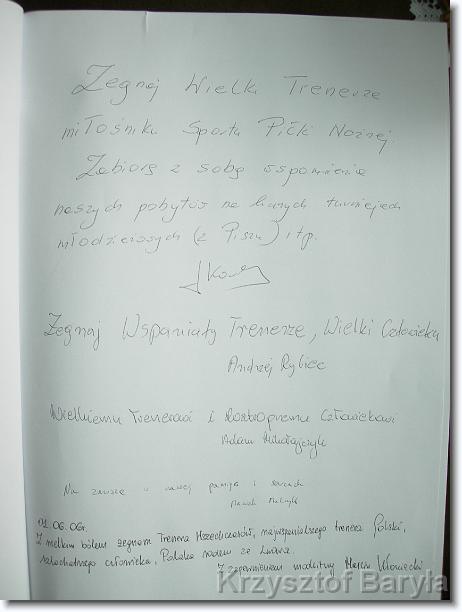 Żegnaj Wielki Trenerze
miłośniku Sportu Piłki Nożnej.
Zabiorę z sobą wspomnienie
naszych pobytów na licznych turniejach
młodzieżowych (z Piszu) itp.
Żegnaj Wspaniały Trenerze, Wielki Człowieku
Andrzej Rybiec
Wielkiemu Trenerowi i Człowiekowi
Adam Mikołajczyk
Na zawsze w naszej pamięci i sercach
Marek
01.06.06r.
Z wielkim bólem żegnam Trenera najwspanialszego trenera Polski,
szlachetnego człowieka, Polaka rodem ze Lwowa.
Z zapewnieniem modlitwy Marcin
Krzysztof Baryła